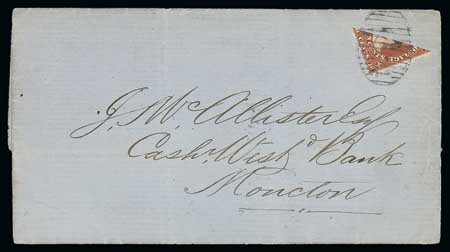 J. McAllister Esqr
Cashr. Westd. Bank
Moncton